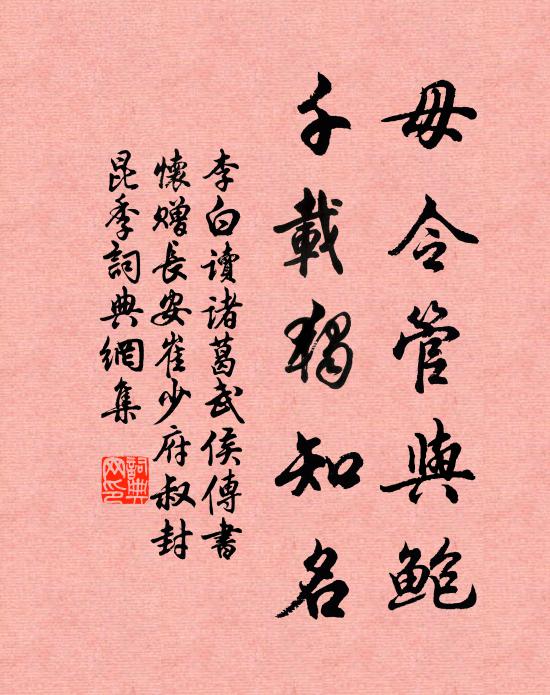 毋令管與鮑
千載獨知名
李白讀諸葛武侯傳書
懷贈長安崔少府叔封
昆季詞典網集
詞典網印